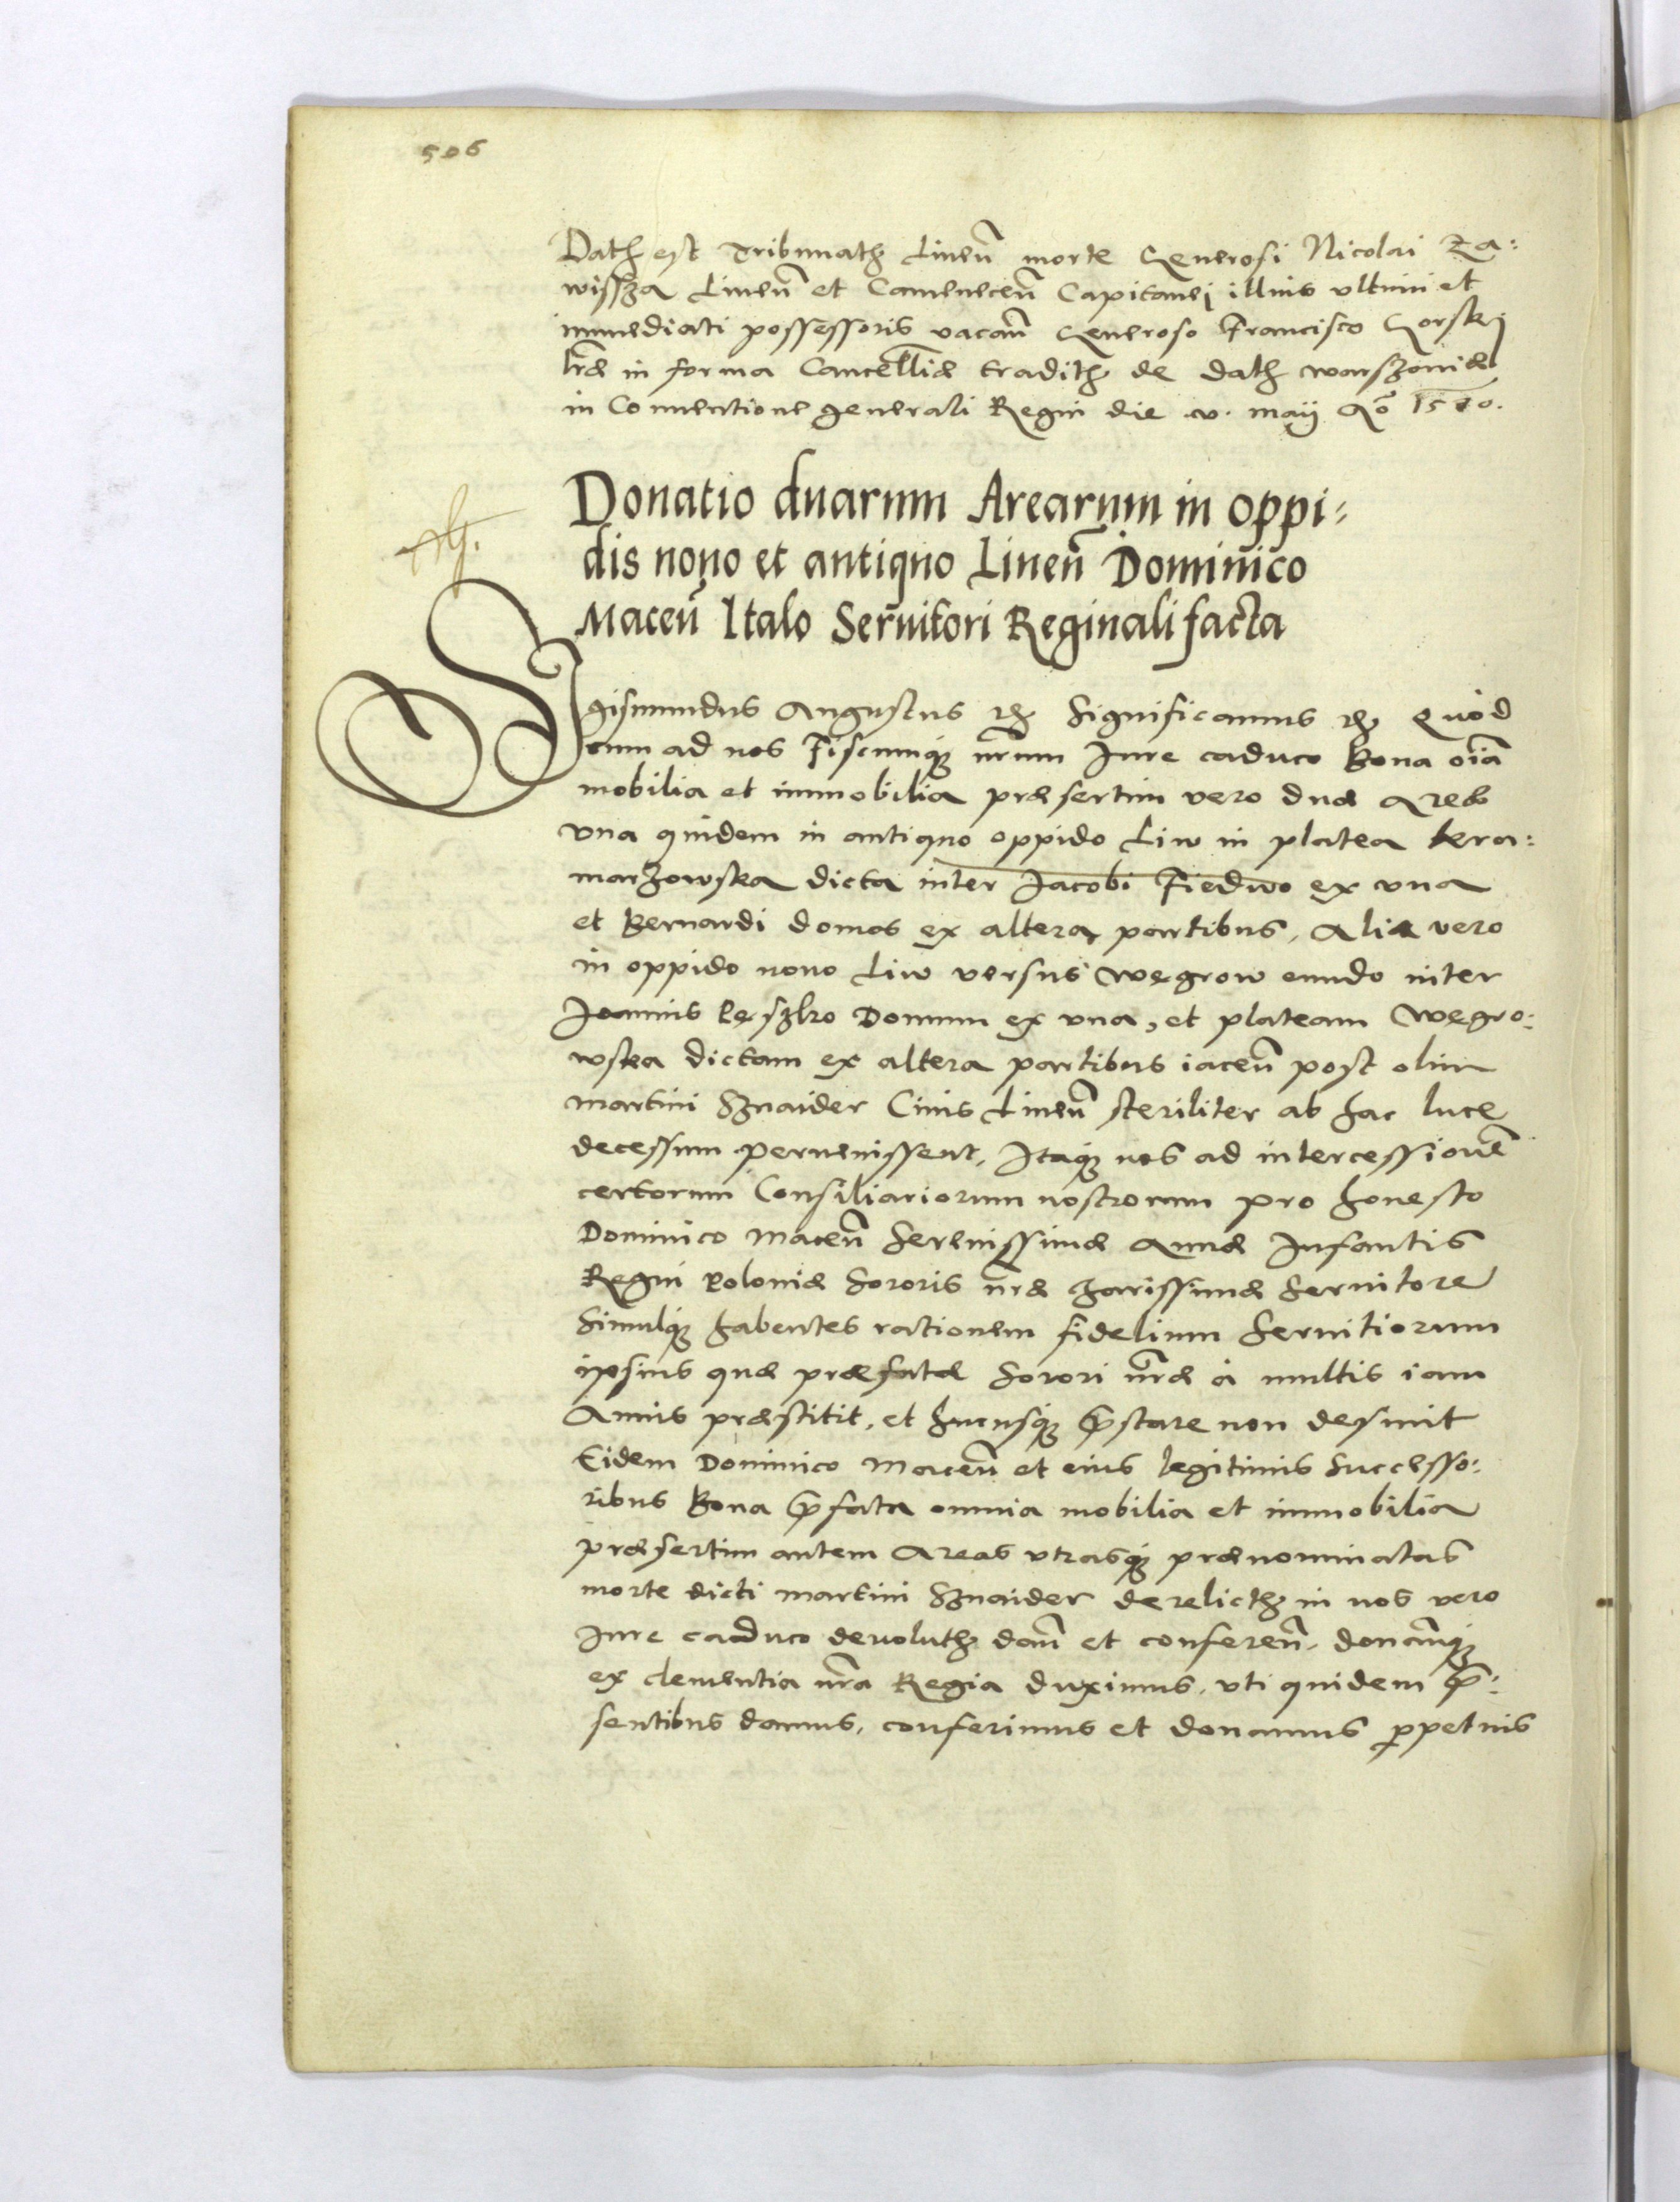 506
Datꝫ est Tribunatꝫ Liuen̄ morte Generosi Nicolai Za:
wissza Liuen̄ et Camenecen̄ Capitanei illius vltimi et
immediati possessoris vacan̄ Generoso Francisco Gorskj
lr̄æ in forma Cancellr̄iæ traditꝫ de datꝫ warszouiæ
in Conuentione generali Regni die .v. maij Ao 1570.
Donatio duarum Arearum in oppi-
dis nouo et antiquo Liuen̄ Dominico
Macen̄ Italo Seruitori Reginali facta
Sigismundus Augustus ꝛꝫ Significamus ꝛꝫ Quod
cum ad nos Fiscumqꝫ nr̄um Jure caduco Bona oīa
mobilia et immobilia præsertim vero duæ Areæ
vna quidem in antiquo oppido Liw in platea kra:
marzowska dicta inter Jacobi Fiedwo ex vna
et Bernardi domos ex altera partibus, Alia vero
in oppido nouo Liw versus Wegrow eundo inter
Joannis Leszko Domum ex vna, et plateam Wegro:
wska dictam ex altera partibus iacen̄ post olim
martini Sznaider Ciuis Liuen̄ steriliter ab hac luce
decessum peruenissent, Itaqꝫ nos ad intercessionē
certorum Consiliariorum nostrorum pro honesto
Dominico Macen̄ Serenissimæ Annæ Infantis
Regni Poloniæ Sororis nr̄æ charissimæ Seruitore
Simulqꝫ habentes rationem fidelium Seruitiorum
ipsius quæ præfatæ Sorori nr̄æ à multis iam
Annis præstitit, et hucusqꝫ p̄stare non desinit
Eidem Dominico Macen̄ et eius legitimis Successo:
ribus Bona p̄fata omnia mobilia et immobilia
præsertim autem Areas vtrasqꝫ prænominatas
morte dicti martini Sznaider derelictꝫ in nos vero
Jure caduco deuolutꝫ dan̄ et conferen̄, donan̄qꝫ
ex clementia nr̄a Regia duximus, vti quidem p̄:
sentibus damus, conferimus et donamus ꝑpetuis